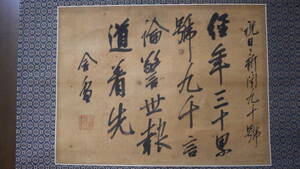 祝日々新聞九千號
經年三十累
號九千言
論警世報
道着先
含雪